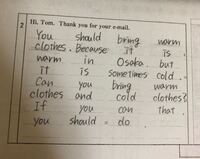 2 Hi, Tom. Thank you for your e-mail.
You should bring warm
clothes. Because it is
warm in Osaka, but
it is sometimes cold.
Can you bring warm
clothes and cold clothes?
If you can that.
you should do.